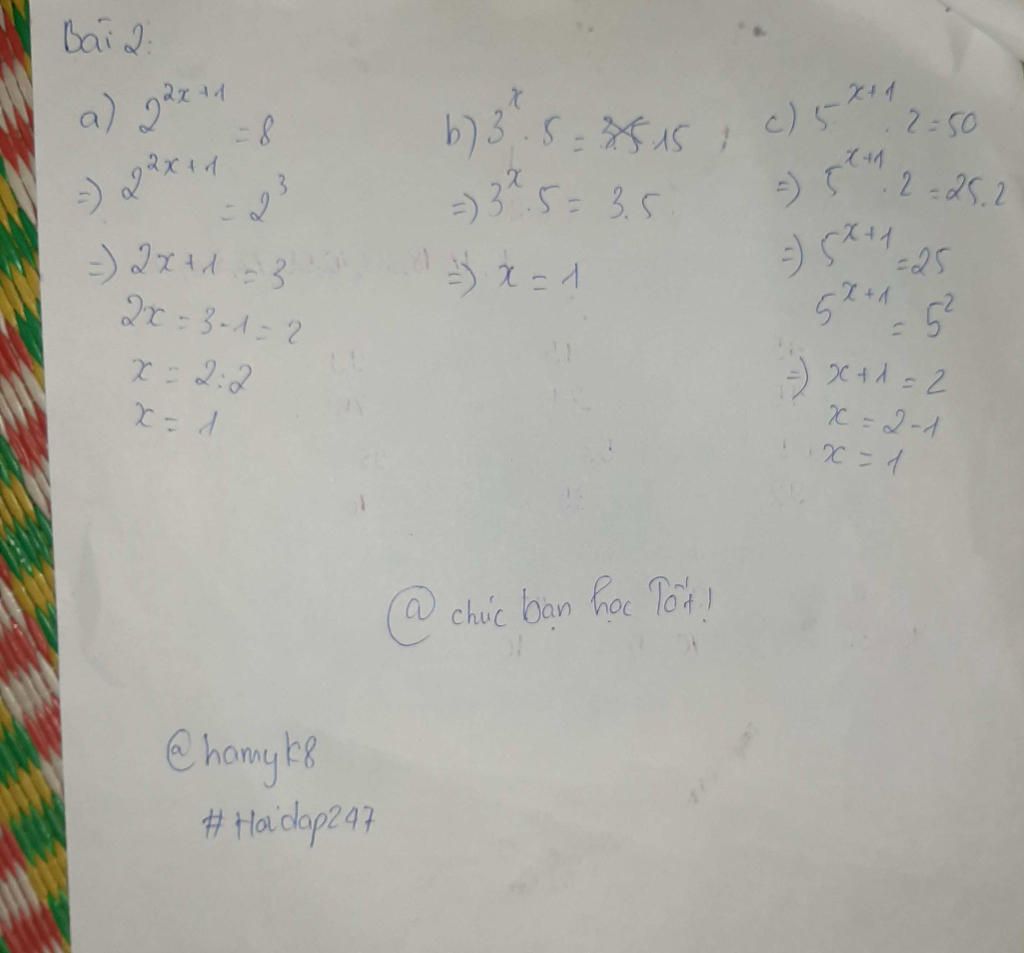 Bài 2:
a) 2^{2x+1} = 8
=) 2^{2x+1} = 2^3
=) 2x+1 = 3
2x = 3-1 = 2
x = 2:2
x = 1
b) 3^x . 5 = 15
=) 3^x . 5 = 3.5
=) x = 1
c) 5^{x+1} . 2 = 50
=) 5^{x+1} . 2 = 25.2
=) 5^{x+1} = 25
5^{x+1} = 5^2
=) x+1 = 2
x = 2-1
x = 1
@ chúc bạn học Tốt!
@hamyk8
#Hoidap247